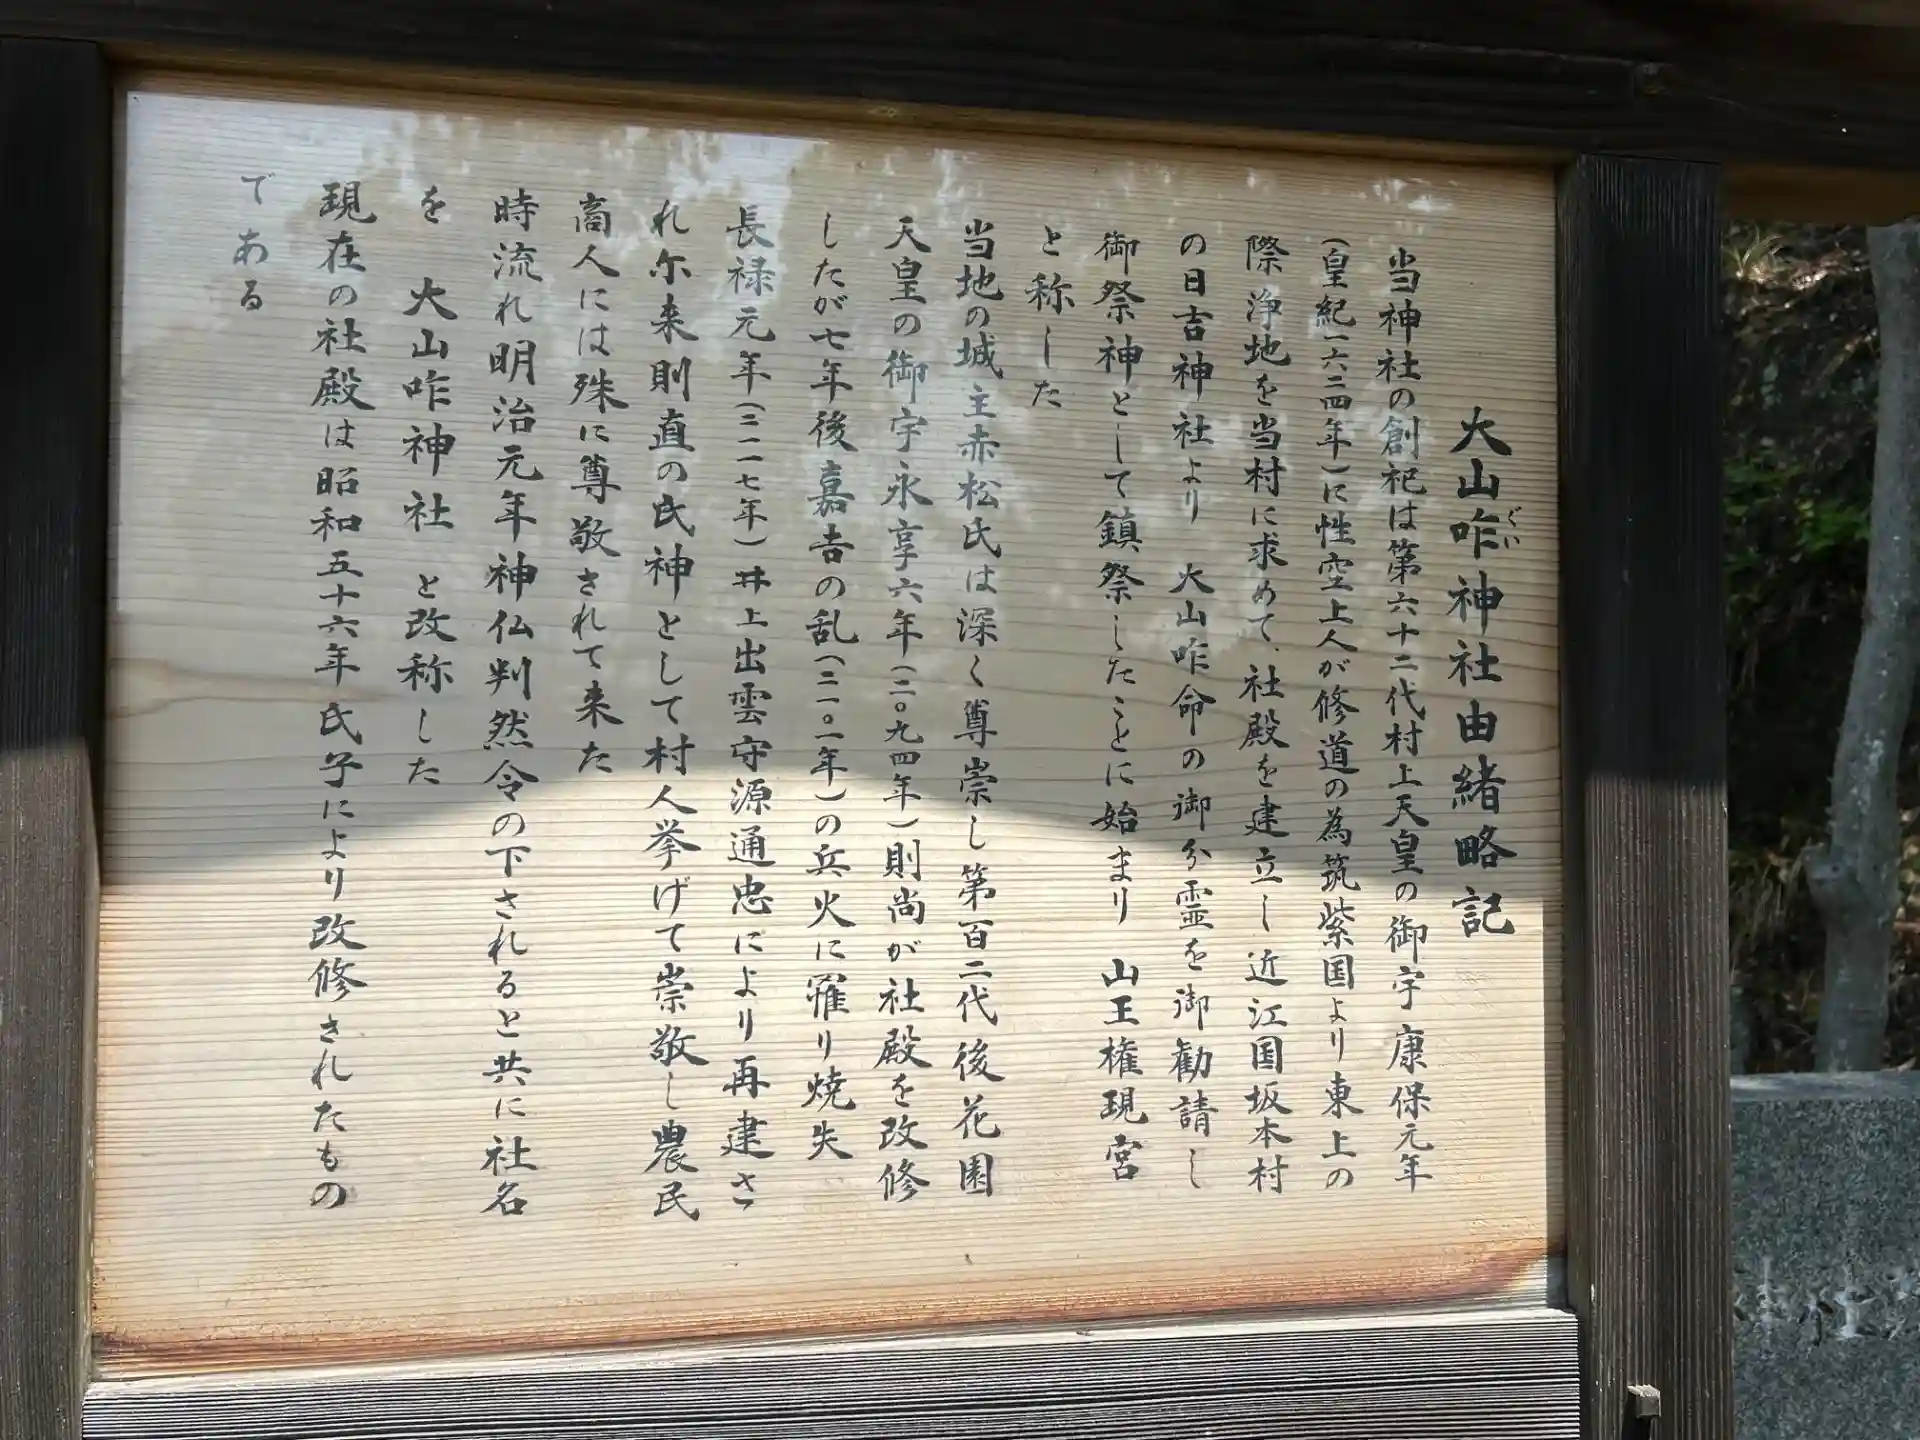 大山咋神社由緒略記
ぐい
当神社の創祀は第六十二代村上天皇の御宇康保元年
(皇紀一六二四年)に性空上人が修道の為筑紫国より東上の
際浄地を当村に求めて、社殿を建立し近江国坂本村
の日吉神社より 大山咋命の御分霊を御勧請し
御祭神として鎮祭したことに始まり 山王権現宮
と称した
当地の城主赤松氏は深く尊崇し第百二代後花園
天皇の御宇永享六年(二〇九四年)則尚が社殿を改修
したが七年後嘉吉の乱(二一〇一年)の兵火に罹り焼失
長禄元年(二一一七年)井上出雲守源通忠により再建さ
れ尓来則直の氏神として村人挙げて崇敬し農民
商人には殊に尊敬されて来た
時流れ明治元年神仏判然令の下されると共に社名
を 大山咋神社 と改称した
現在の社殿は昭和五十六年氏子により改修されたもの
である